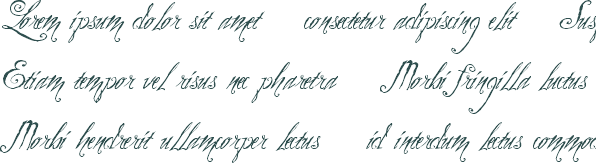 Lorem ipsum dolor sit amet consectetur adipiscing elit Sus
Etiam tempor vel risus nec pharetra Morbi fringilla luctus
Morbi hendrerit ullamcorper lectus id interdum lectus commod